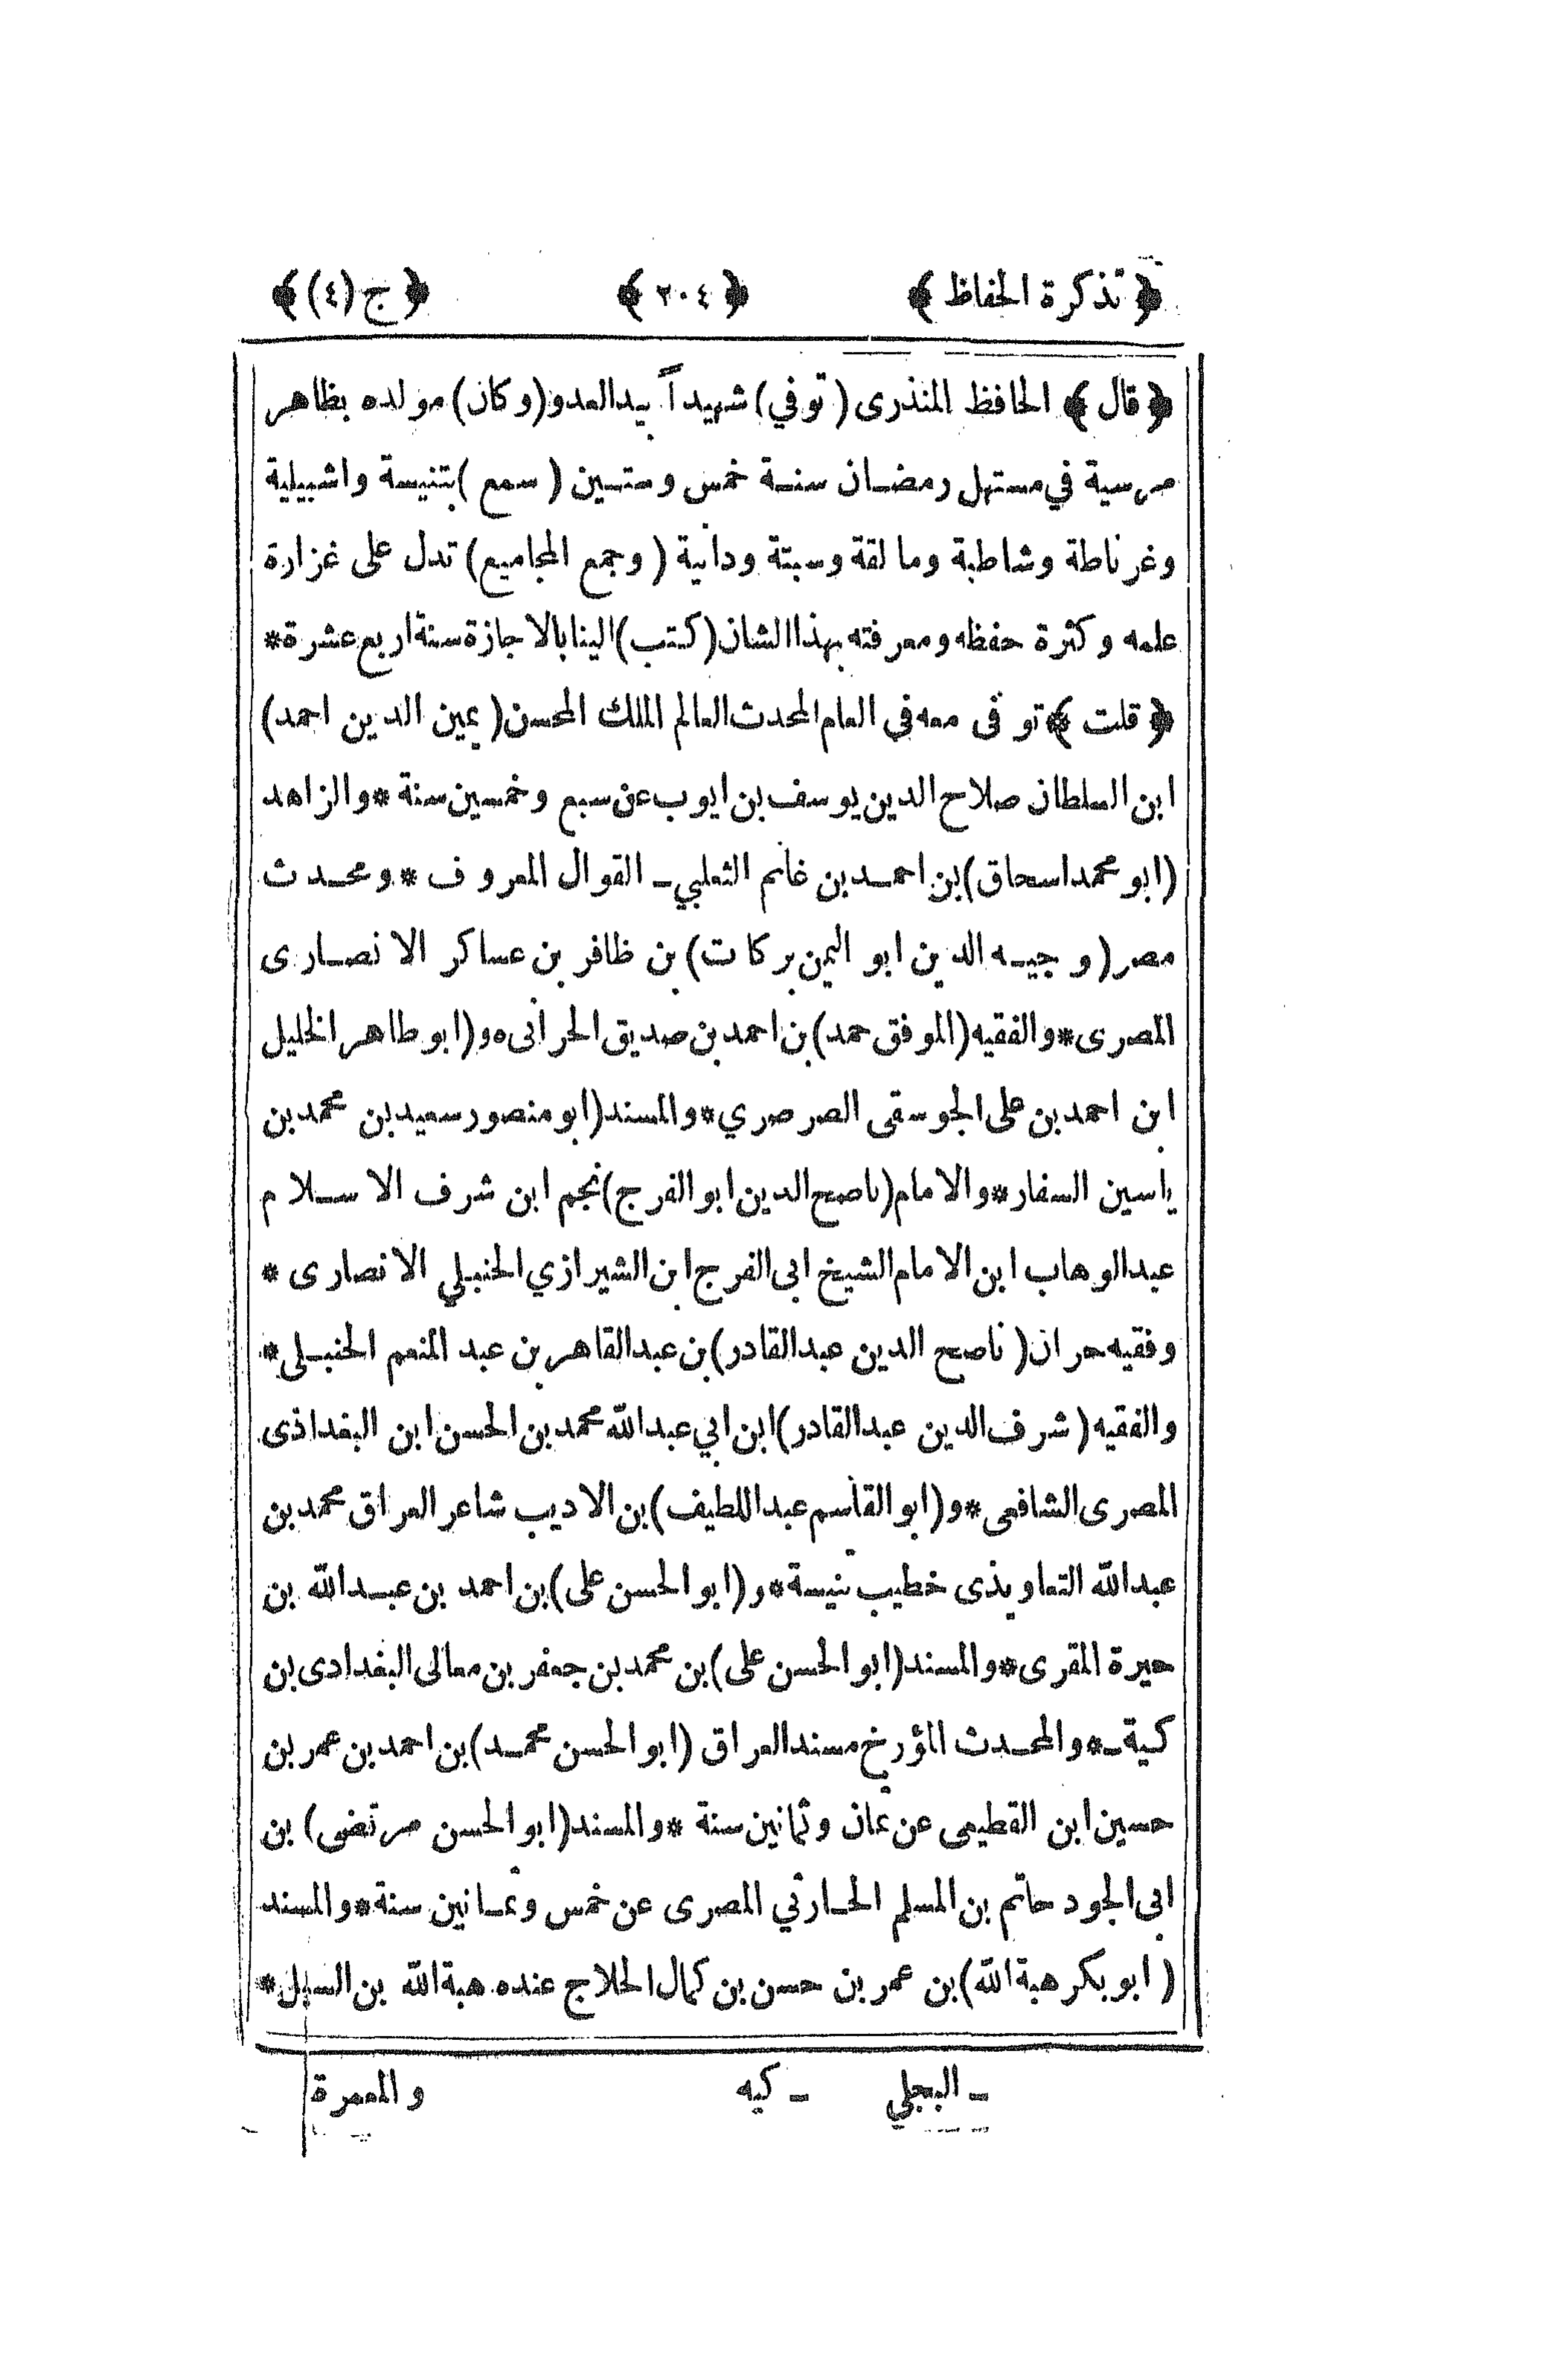 ﴿ تذكرة الحفاظ ﴾ ﴿ ٢٠٤ ﴾ ﴿ ج (٤) ﴾
﴿ قال ﴾ الحافظ المنذرى (توفي) شهيداً بيد العدو (وكان) مولده بظاهر
مرسية في مستهل رمضان سنة خمس وستين (سمع) بتنيسة واشبيلية
وغرناطة وشاطبة ومالقة وسبتة ودانية (وجمع المجاميع) تدل على غزارة
علمه وكثرة حفظه ومعرفته بهذا الشان (كتب) الينا بالاجازة سنة اربع عشرة *
﴿ قلت ﴾ توفى معه في العام المحدث العالم الملك المحسن (يمين الدين احمد)
ابن السلطان صلاح الدين يوسف بن ايوب عن سبع وخمسين سنة * والزاهد
(ابو محمد اسحاق) بن احمد بن غانم الثعلبي ـ القوال المعروف * ومحدث
مصر (وجيه الدين ابو اليمن بركات) بن ظافر بن عساكر الانصارى
المصرى * والفقيه (الموفق حمد) بن احمد بن صديق الحرانى ه و (ابو طاهر الخليل
ابن احمد بن على الجوسقى الصرصري * والمسند (ابو منصور سعيد بن محمد بن
ياسين السفار * والامام (ناصح الدين ابو الفرج) نجم ابن شرف الاسلام
عبد الوهاب ابن الامام الشيخ ابى الفرج ابن الشيرازي الحنبلي الانصارى *
وفقيه حران (ناصح الدين عبد القادر) بن عبد القاهر بن عبد المنعم الحنبلى *
والفقيه (شرف الدين عبد القادر) ابن ابي عبد الله محمد بن الحسن ابن البغداذى
المصرى الشافعى * و (ابو القاسم عبد اللطيف) بن الاديب شاعر العراق محمد بن
عبد الله التعاويذى خطيب تنيسة * و (ابو الحسن على) بن احمد بن عبد الله بن
حيرة المقرى * والمسند (ابو الحسن على) بن محمد بن جعفر بن معالى البغدادى بن
كية ـ * والمحدث المؤرخ مسند العراق (ابو الحسن محمد) بن احمد بن عمر بن
حسين ابن القطيعى عن ثمان وثمانين سنة * والمسند (ابو الحسن مرتضى) بن
ابى الجود حاتم بن المسلم الحارثي المصرى عن خمس وثمانين سنة * والمسند
(ابو بكر هبة الله) بن عمر بن حسن بن كمال الحلاج عنده هبة الله بن السبل *
ـ البجلي ـ كيه والمعمرة